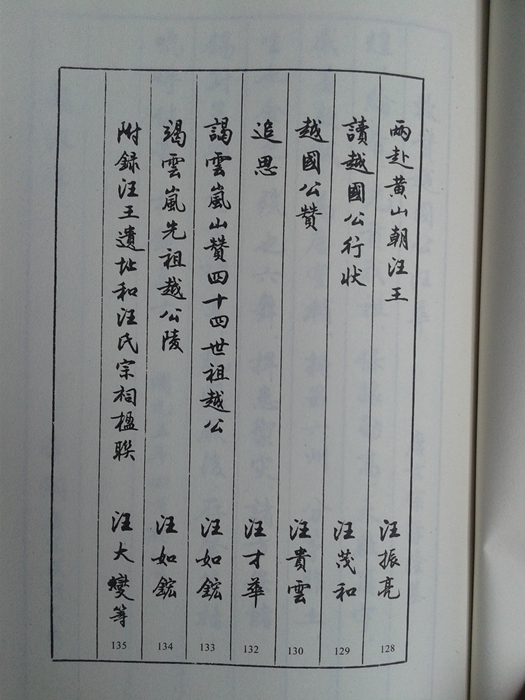 兩赴黄山朝汪王 汪振亮 128
讀越國公行狀 汪茂和 129
越國公贊 汪貴雲 130
追思 汪才華 132
謁雲嵐山贊四十四世祖越公 汪如鋐 133
謁雲嵐先祖越公陵 汪如鋐 134
附録汪王遺址和汪氏宗祠楹联 汪大燮等 135